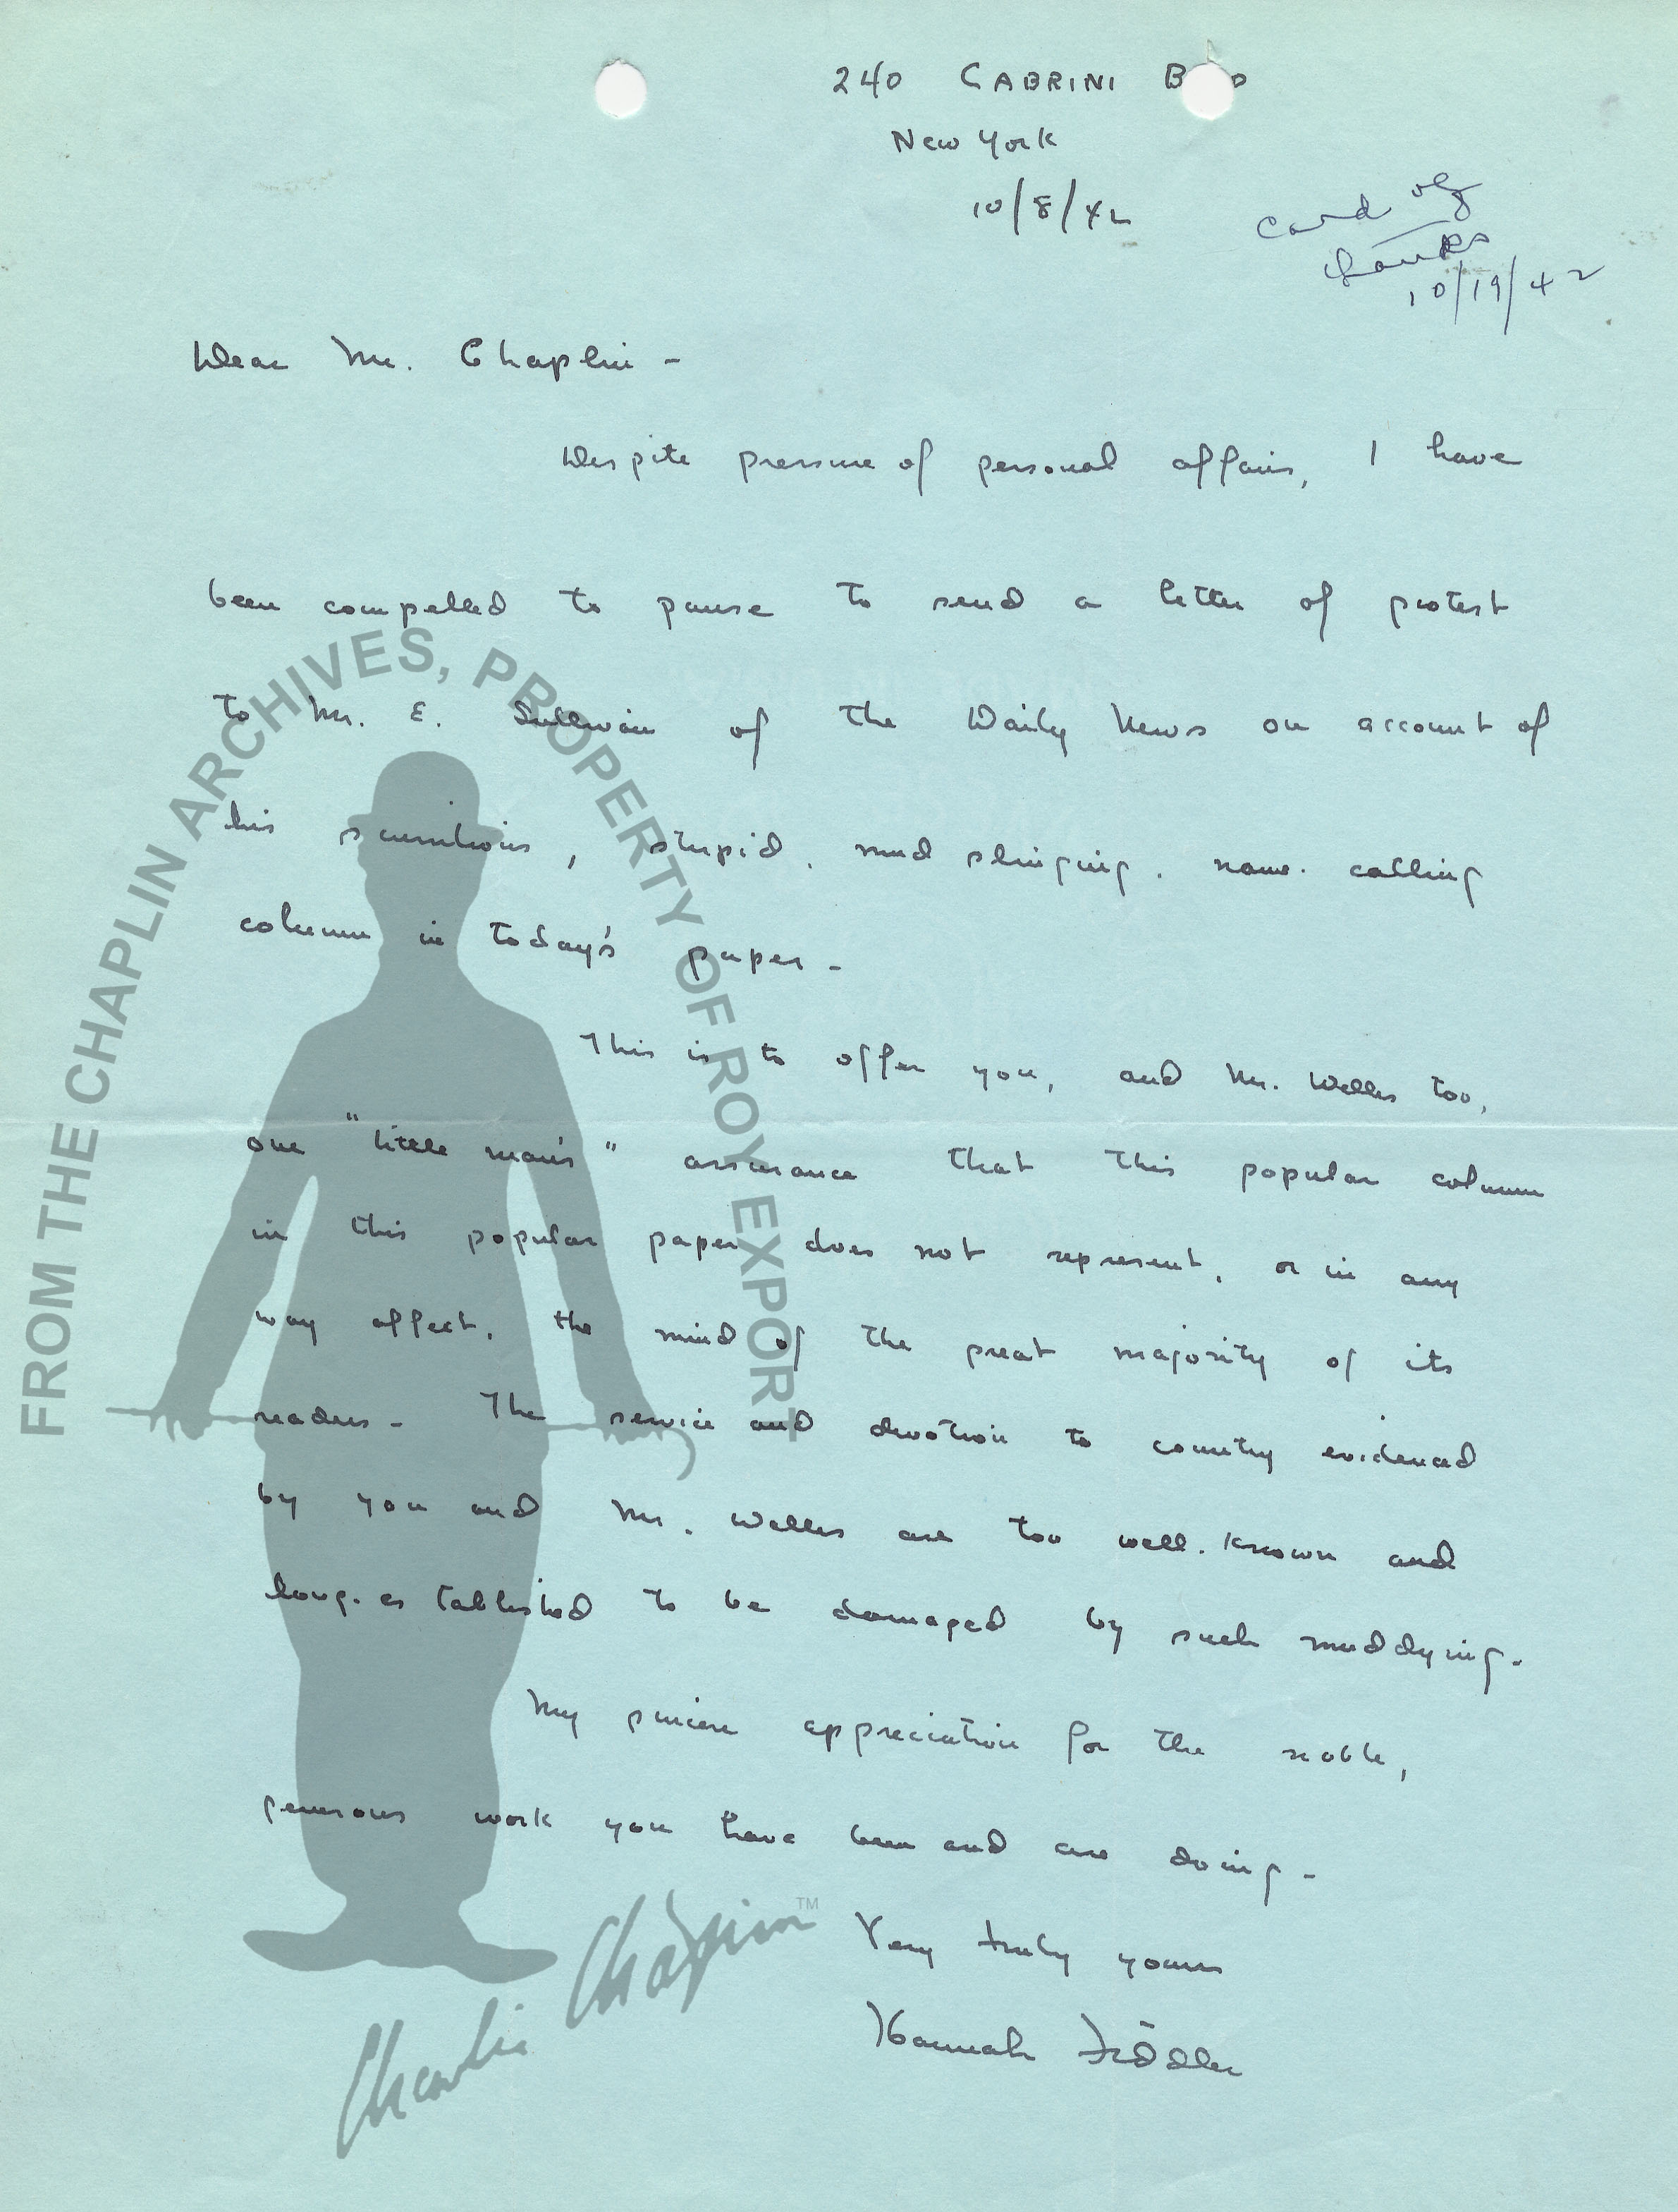 240 CABRINI B D
New York
10/8/42
Card of
thanks
10/19/42
Dear Mr. Chaplin -
Despite pressure of personal affairs, I have
been compelled to pause to send a letter of protest
to Mr. E. Sullivan of the Daily News on account of
his scurrilous, stupid, mud slinging, name-calling
column in today's paper -
This is to offer you, and Mr. Welles too,
one "little man's" assurance that this popular column
in this popular paper does not represent, or in any
way affect, the mind of the great majority of its
readers - The service and devotion to country evidenced
by you and Mr. Welles are too well-known and
long-established to be damaged by such muddying -
My sincere appreciation for the noble,
generous work you have been and are doing -
Very truly yours
Hannah
FROM THE CHAPLIN ARCHIVES, PROPERTY OF ROY EXPORT
Charlie Chaplin™